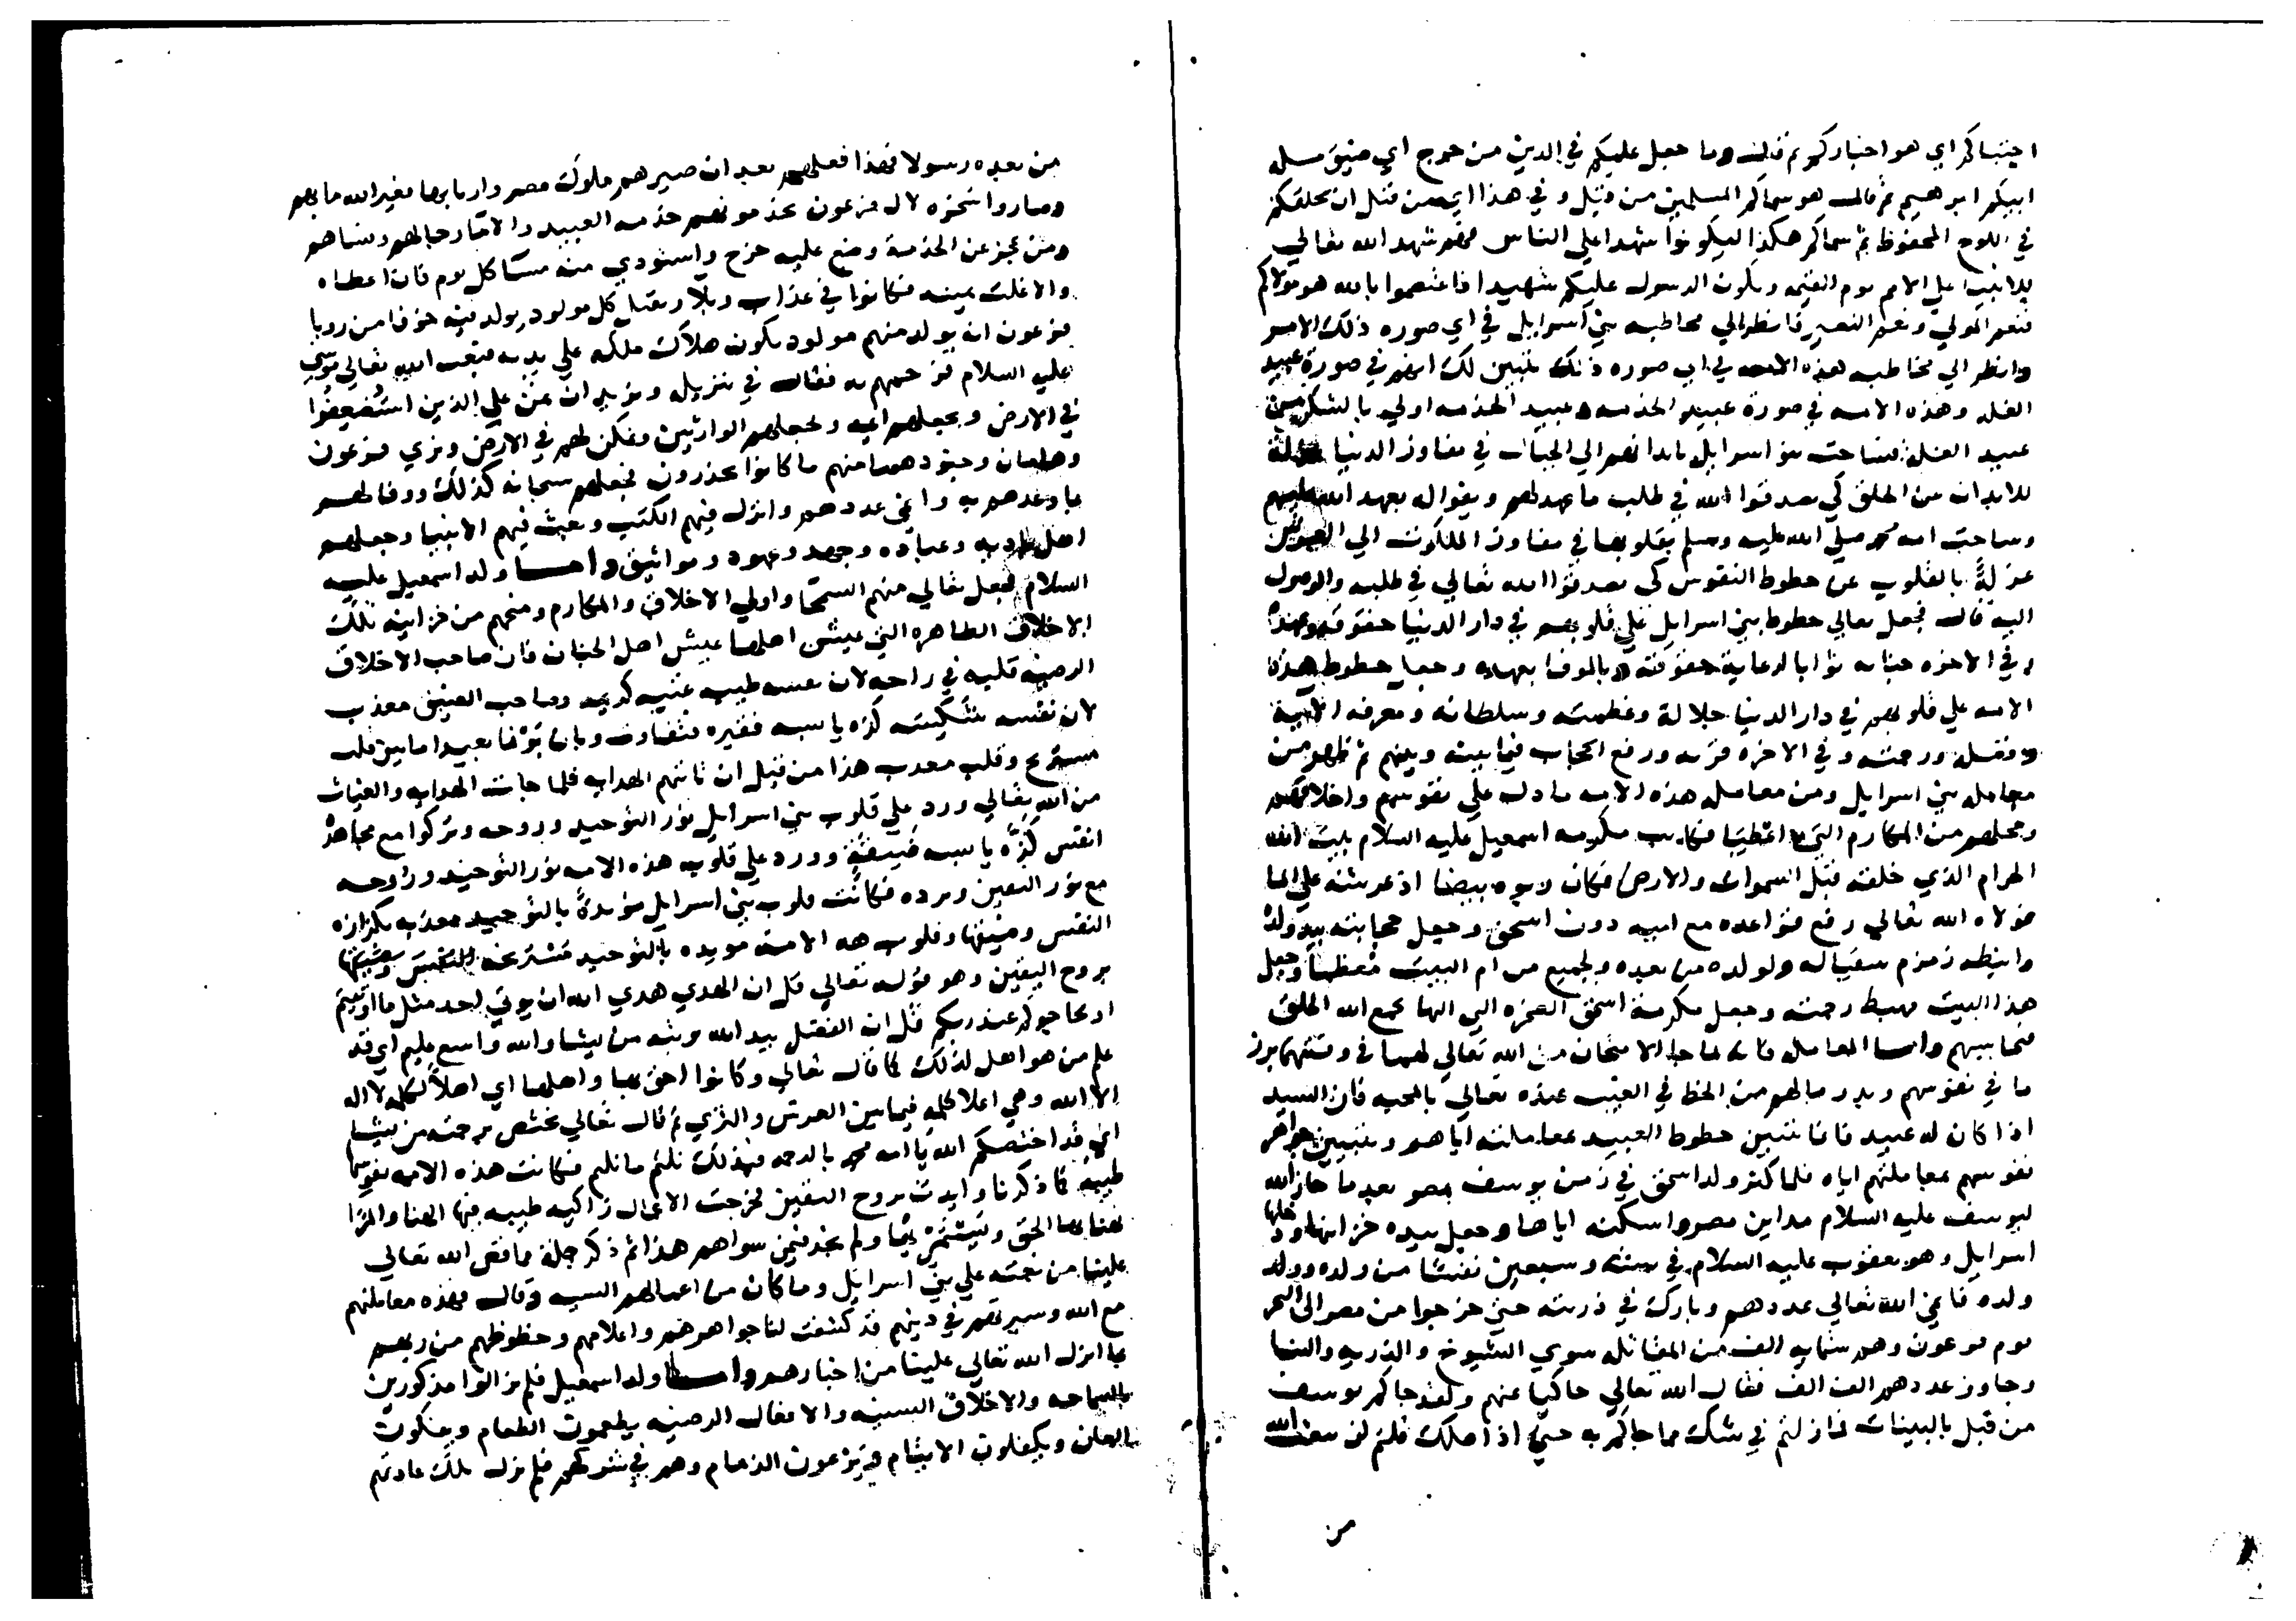 اجتباكم اي هو اختاركم ثم قال وما جعل عليكم في الدين من حرج اي ضيق مله
ابيكم ابرهيم ثم قال هو سماكم المسلمين من قبل وفي هذا اي من قبل ان يخلقكم
في اللوح المحفوظ ثم سماكم هكذا ليكونوا شهدا علي الناس فهم شهد الله تعالي
للانبيا علي الامم يوم القيمه ويكون الرسول عليكم شهيدا فاعتصموا بالله هو مولاكم
فنعم المولي ونعم النصير فانظر الي مخاطبه بني اسرايل في اي صوره ذلك الامر
وانظر الي مخاطبه هذه الامه في اي صوره ذلك يتبين لك انهم في صورة عبيد
الغله وهذه الامه في صورة عبيد الخدمه وعبيد الخدمه اولي بالشكر من
عبيد الغله فساحت بنو اسرايل بابدانهم الي الجبال في مفاوز الدنيا عزلة
للابدان من الخلق كي يصدقوا الله في طلب ما عهد لهم ويفوا له بعهد الله عليهم
وساحت امه محمد صلي الله عليه وسلم بقلوبها في مفاوز الملكوت الي العرش
عزلةً بالقلوب عن حظوط النفوس كي يصدقوا الله تعالي في طلبه والوصول
اليه قال فجعل تعالي حظوط بني اسرايل علي قلوبهم في دار الدنيا حقوقه وعهده
وفي الاخره جنانه ثوابا لرعاية حقوقه وبالوفا بعهده وجعل حظوط هذه
الامه علي قلوبهم في دار الدنيا جلاله وعظمته وسلطانه ومعرفه الايه
وفضله ورحمته وفي الاخره قربه ورفع الحجاب فيما بينه وبينهم ثم ظهر من
معامله بني اسرايل ومن معامله هذه الامه ما دل علي نفوسهم واخلاقهم
ومحلهم من المكارم التي اعطيها فكانت مكرمه اسمعيل عليه السلام بيت الله
الحرام الذي خلقه قبل السموات والارض فكان ربوه بيضا اذ عرشه علي الما
فولاه الله تعالي رفع قواعده مع ابيه دون اسحق وجعل حجابته بيد ولده
وانبط زمزم سقيا له ولولده من بعده ولجميع من ام البيت معظما وجعل
هذا البيت مهبط رحمته وجعل مكرمة اسحق الصخره التي اليها يجمع الله الخلق
فيحاسبهم واما المعامله فانه لما جا الامتحان من الله تعالي لهما في وقتهما برز
ما في نفوسهم وبدر مالهم من الحظ في الغيب عنده تعالي بالمحبه فان السيد
اذا كان له عبيد فانما تتبين حظوط العبيد بمعاملته اياهم وتتبين جواهر
نفوسهم بمعاملتهم اياه فلما كثر ولد اسحق في زمن يوسف بمصر بعدما حاز الله
ليوسف عليه السلام مداين مصر واسكنه اياها وجعل بيده خزاينها ودخلها
اسرايل وهو يعقوب عليه السلام في ستة وسبعين نفسًا من ولده وولد
ولده فانمي الله تعالي عددهم وبارك في ذريته حتي خرجوا من مصر الي البحر
يوم فرعون وهم ستمايه الف من المقاتله سوي الشيوخ والذريه والنسا
وجاوز عددهم الف الف فقال الله تعالي حاكيا عنهم ولقد جاكم يوسف
من قبل بالبينات فما زلتم في شك مما جاكم به حتي اذا هلك قلتم لن يبعث الله
من
من بعده رسولا فهذا فعلهم بعد ان صيرهم ملوك مصر واربابها فغير الله ما بهم
وصاروا سخره لال فرعون يخدمونهم خدمه العبيد والاما رجالهم ونساهم
ومن عجز عن الخدمة وضع عليه خرج واستودي منه مسا كل يوم فان اعطاه
والا غلت يمينه فكانوا في عذاب وبلا ويقتل كل مولود يولد فيه خوفا من رويا
فرعون ان يولد منهم مولود يكون هلاك ملكه علي يديه فبعث الله تعالي موسي
عليه السلام فرحمهم به فقال في تنزيله ونريد ان نمن علي الذين استضعفوا
في الارض ونجعلهم ايمه ونجعلهم الوارثين ونمكن لهم في الارض ونري فرعون
وهامان وجنودهما منهم ما كانوا يحذرون فجعلهم سبحانه كذلك ووفا لهم
بما وعدهم به وانمي عددهم وانزل فيهم الكتب وبعث فيهم الانبيا وجعلهم
اهل وعباده وجهد وعهود ومواثيق واما ولد اسمعيل عليه
السلام فجعل تعالي منهم السمحا واولي الاخلاق والمكارم ومنحهم من خزاينه تلك
الاخلاق الطاهره التي عيش اهلها عيش اهل الجنان فان صاحب الاخلاق
الرضيه قلبه في راحه لان نفسه طيبه غنيه كريمه وصاحب الضيق معذب
لان نفسه شكيسه كزه يابسه فقيره فتفاوت وباين بونا بعيدا ما بين قلب
مستريح وقلب معذب هذا من قبل ان تاتهم الهدايه فلما جات الهدايه والغياث
من الله تعالي ورد علي قلوب بني اسرايل نور التوحيد وروحه وتركوا مع مجاهدة
انفس كزّه يابسه ضيقةٍ وورد علي قلوب هذه الامه نور التوحيد وروحه
مع نور اليقين وبرده فكانت قلوب بني اسرايل مؤيدةً بالتوحيد معذبه بكزازه
النفس وضيقها وقلوب هذه الامة مويده بالتوحيد مستريحه
بروح اليقين وهو قوله تعالي قل ان الهدي هدي الله ان يوتي احد مثل ما اوتيتم
او يحاجوكم عند ربكم قل ان الفضل بيد الله يوتيه من يشا والله واسع عليم اي قد
علم من هو اهل لذلك كما قال تعالي وكانوا احق بها واهلها اي اهلاً لكلمه لا اله
الا الله وهي اعلا كلمه فيما بين العرش والثري ثم قال تعالي يختص برحمته من يشا
اي قد اختصكم الله يا امه محمد بالرحمه فبذلك نلتم ما نلتم فكانت هذه الامه نفوسها
طيبة كما ذكرنا وايدت بروح اليقين فخرجت الاعمال زاكيه طيبه فيها الهنا والمرا
الحق ولم يجد فيمن سواهم هذا ثم ذكر جملة مما قص الله تعالي
علينا من نعمته علي بني اسرايل وما كان من اعمالهم السيه وقال فهذه معاملتهم
مع الله وسيرتهم في دينهم قد كشفت لنا جواهرهم واعلامهم وحظوظهم من ربهم
بما انزل الله تعالي علينا من اخبارهم واما ولد اسمعيل فلم يزالوا مذكورين
بالسماحه والاخلاق السنيه والافعال الرضيه يطعمون الطعام ويفكون
العاني ويكفلون الايتام ويرعون الذمام وهم في شركهم فلم يزل تلك عادتهم